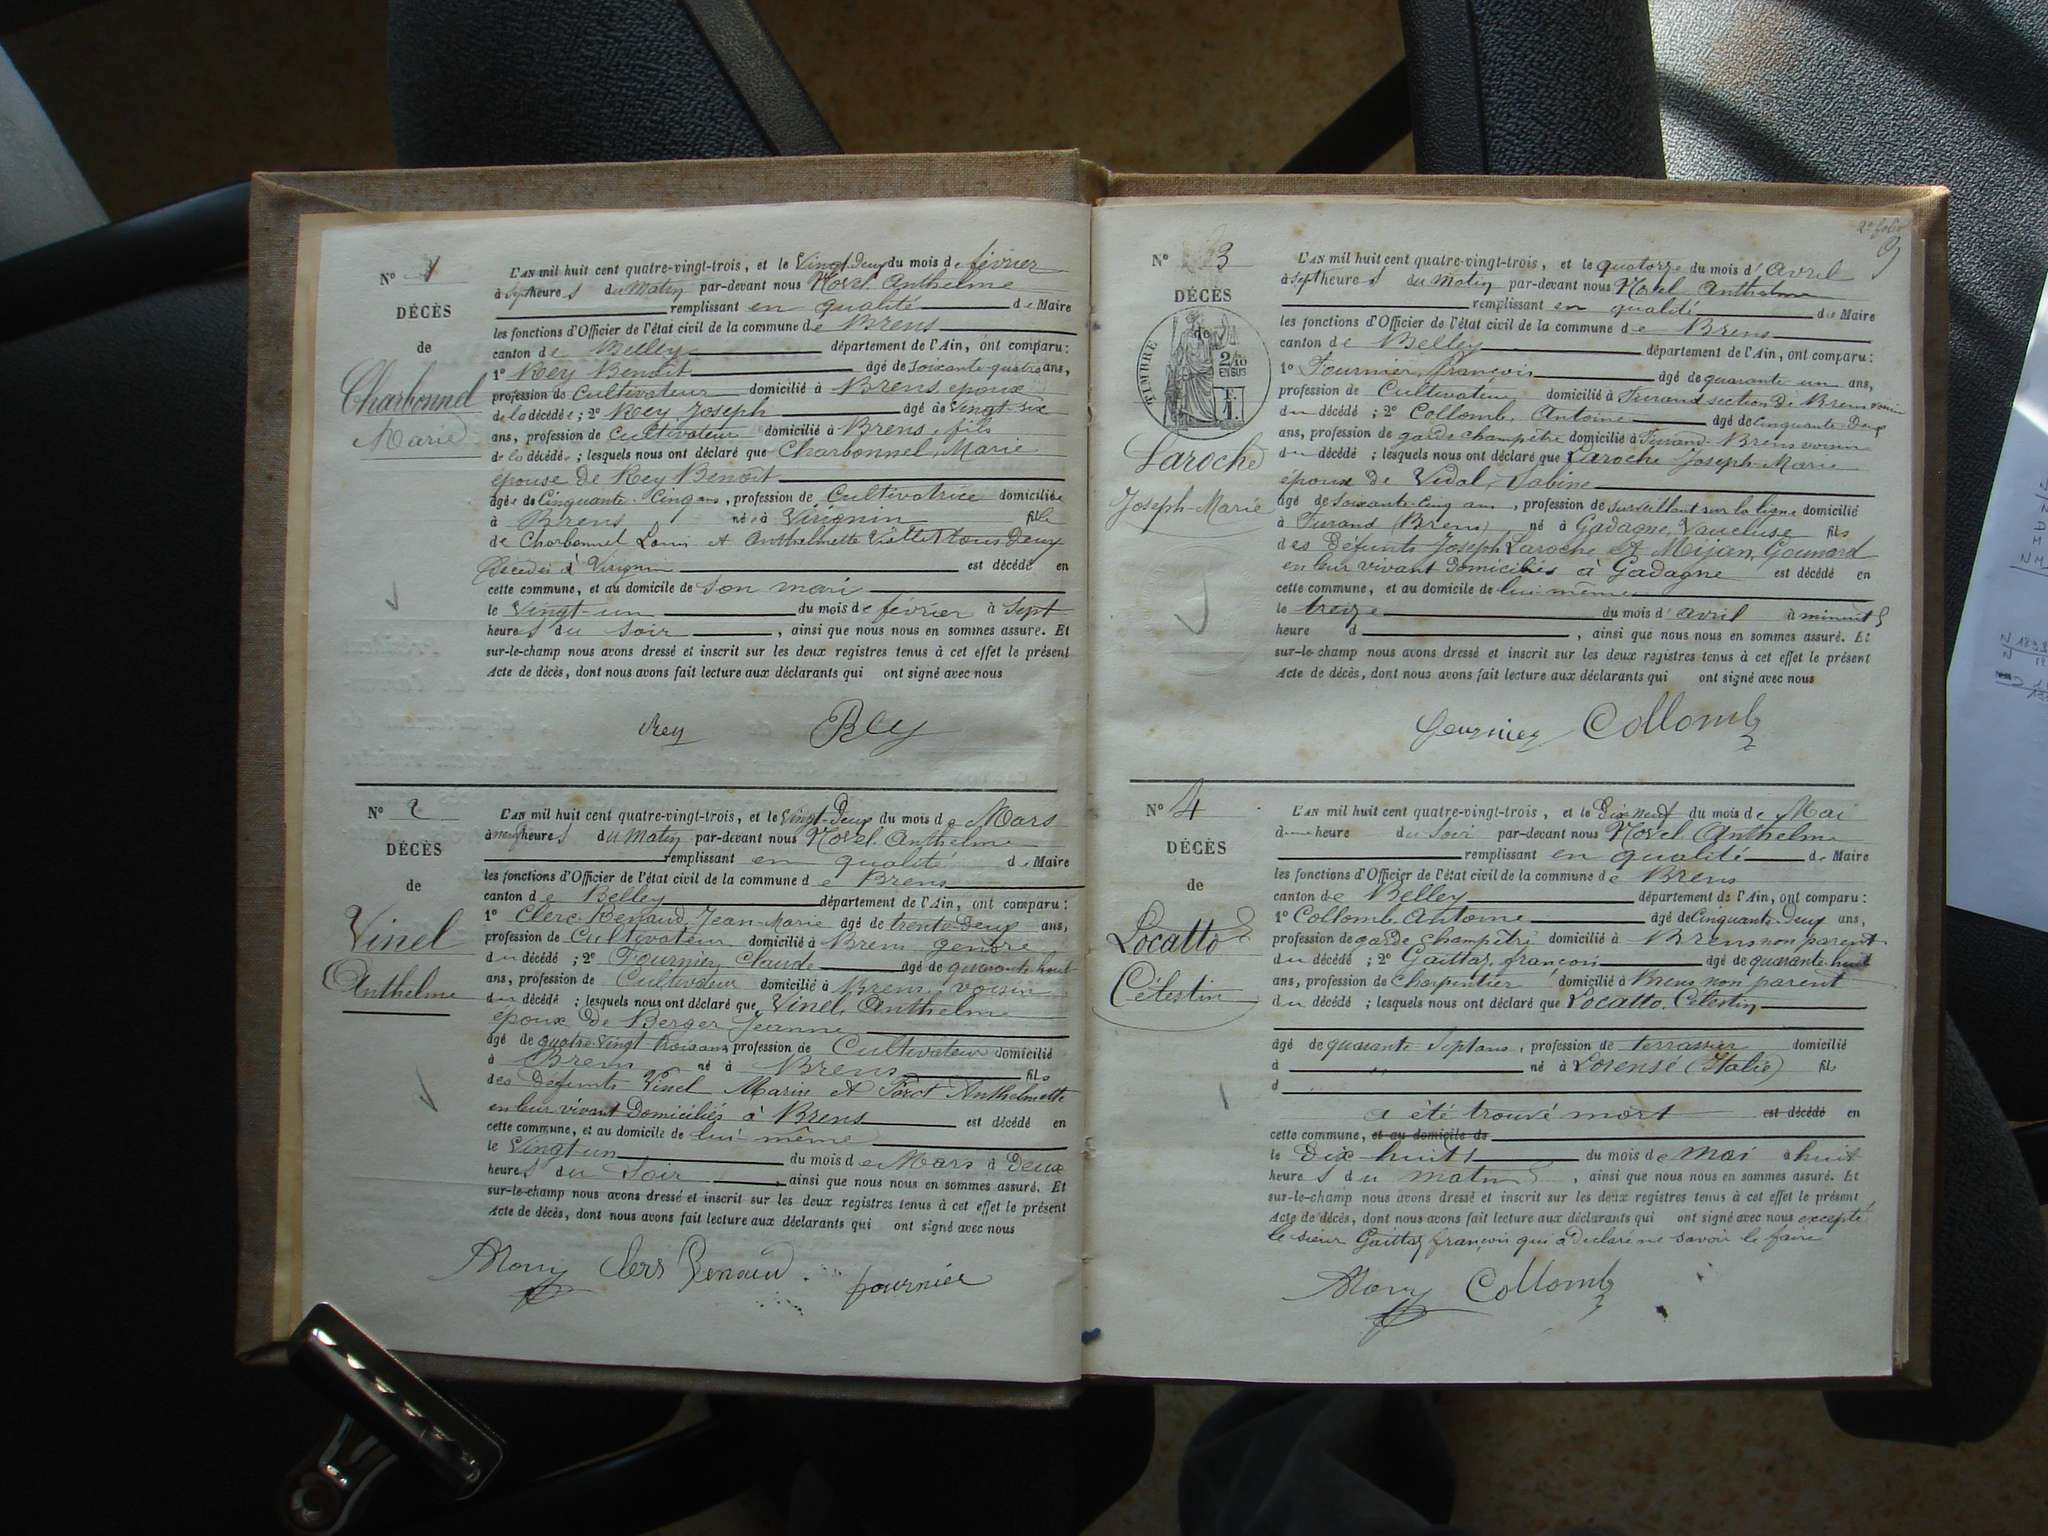 N° 1
DÉCÈS
de
Charbonnel
Marie
L'AN mil huit cent quatre-vingt-trois, et le Vingt Deux du mois de février
à sept heures du Matin par-devant nous Anthelme
remplissant en qualité de Maire
les fonctions d'Officier de l'état civil de la commune de Brens
canton de Belley département de l'Ain, ont comparu:
1° Rey Benoit agé de soixante-quatre ans,
profession de Cultivateur domicilié à Brens époux
de la décédée; 2° Rey Joseph agé de Vingt-six
ans, profession de Cultivateur domicilié à Brens, fils
de la décédée; lesquels nous ont déclaré que Charbonnel, Marie
épouse de Rey Benoit
agée de Cinquante-Cinq ans, profession de Cultivatrice domiciliée
à Brens née à Virignin fille
de Charbonnel Louis et Anthelmette tous Deux
Décédés à Virignin est décédé en
cette commune, et au domicile de son mari
le Vingt-un du mois de février à sept
heures du soir, ainsi que nous nous en sommes assuré. Et
sur-le-champ nous avons dressé et inscrit sur les deux registres tenus à cet effet le présent
Acte de décès, dont nous avons fait lecture aux déclarants qui ont signé avec nous
Rey Rey
N° 2
DÉCÈS
de
Vinel
Anthelme
L'AN mil huit cent quatre-vingt-trois, et le Vingt-Deux du mois de Mars
à neuf heures du Matin par-devant nous Anthelme
remplissant en qualité de Maire
les fonctions d'Officier de l'état civil de la commune de Brens
canton de Belley département de l'Ain, ont comparu:
1° Clerc-Renaud Jean-Marie agé de trente-Deux ans,
profession de Cultivateur domicilié à Brens gendre
du décédé; 2° Fournier, Claude agé de quarante-huit
ans, profession de Cultivateur domicilié à Brens, voisin
du décédé; lesquels nous ont déclaré que Vinel, Anthelme
époux de Berger Jeanne
agé de quatre-vingt-trois ans, profession de Cultivateur domicilié
à Brens né à Brens fils
des Défunts Vinel Marin et Anthelmette
en leur vivant Domiciliés à Brens est décédé en
cette commune, et au domicile de lui-même
le Vingt-un du mois de Mars à Deux
heures du Soir, ainsi que nous nous en sommes assuré. Et
sur-le-champ nous avons dressé et inscrit sur les deux registres tenus à cet effet le présent
Acte de décès, dont nous avons fait lecture aux déclarants qui ont signé avec nous
Clerc Renaud fournier
2e folio
N° 3
DÉCÈS
de
TIMBRE
2/10
EN SUS
Laroche
Joseph-Marie
L'AN mil huit cent quatre-vingt-trois, et le quatorze du mois d'avril
à sept heures du Matin par-devant nous Anthelme
remplissant en qualité de Maire
les fonctions d'Officier de l'état civil de la commune de Brens
canton de Belley département de l'Ain, ont comparu:
1° Fournier, françois agé de quarante-un ans,
profession de Cultivateur domicilié à Furand section de Brens voisin
du décédé; 2° Collomb, Antoine agé de Cinquante-Deux
ans, profession de garde champêtre domicilié à Furand-Brens voisin
du décédé; lesquels nous ont déclaré que Laroche Joseph-Marie
époux de Vidal, Sabine
agé de Soixante-Cinq ans, profession de surveillant sur la ligne domicilié
à Furand (Brens) né à Gadagne, Vaucluse fils
des Défunts Joseph Laroche et Gounard
en leur vivant Domiciliés à Gadagne est décédé en
cette commune, et au domicile de lui-même
le treize du mois d'avril à minuit
heure d, ainsi que nous nous en sommes assuré. Et
sur-le-champ nous avons dressé et inscrit sur les deux registres tenus à cet effet le présent
Acte de décès, dont nous avons fait lecture aux déclarants qui ont signé avec nous
Collomb
N° 4
DÉCÈS
de
Locatto
Célestin
L'AN mil huit cent quatre-vingt-trois, et le Dix Neuf du mois de Mai
à une heure du Soir par-devant nous Anthelme
remplissant en qualité de Maire
les fonctions d'Officier de l'état civil de la commune de Brens
canton de Belley département de l'Ain, ont comparu:
1° Collomb Antoine agé de Cinquante-Deux ans,
profession de garde champêtre domicilié à Brens non parent
du décédé; 2° Gaittaz, françois agé de quarante-huit
ans, profession de Charpentier domicilié à Brens non parent
du décédé; lesquels nous ont déclaré que Locatto, Célestin
agé de quarante-Sept ans, profession de terrassier domicilié
d né à Lorensé (Italie) fils
d
a été trouvé mort est décédé en
cette commune, et au domicile de
le Dix-huit du mois de mai à huit
heures du matin, ainsi que nous nous en sommes assuré. Et
sur-le-champ nous avons dressé et inscrit sur les deux registres tenus à cet effet le présent
Acte de décès, dont nous avons fait lecture aux déclarants qui ont signé avec nous excepté
le sieur Gaittaz, françois qui a Déclaré ne savoir le faire
Collomb